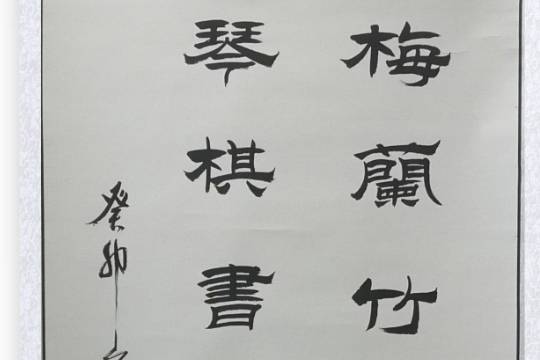 梅蘭竹
琴棋書
癸卯